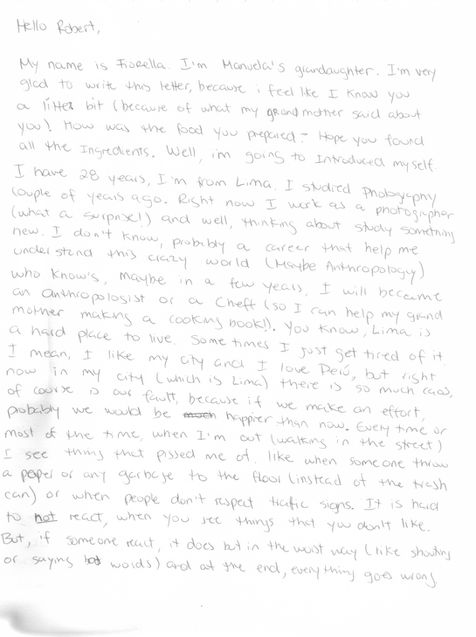 Hello Robert,
My name is Fiorella. I'm Manuela's grandaughter. I'm very
glad to write this letter, because i feel like I know you
a litter bit (because of what my grandmother said about
you)! How was the food you prepared? Hope you found
all the Ingredients. Well, i'm going to Introduced myself.
I have 28 years, I'm from Lima. I studied Photography
couple of years ago. Right now I work as a photographer
(what a surprise!) and well, thinking about study something
new. I don't know, probably a career that help me
understand this crazy world (Maybe Anthropology)
who know's, maybe in a few years, I will became
an anthropologist or a Cheff (so I can help my grand
mother making a cooking book!). You know, Lima is
a hard place to live. Some times I just get tired of it
I mean, I like my city and I love Perú, but right
now in my city (which is Lima) there is so much caos,
of course is our fault, because if we make an effort,
probably we would be much happier than now. Every time or
most of the time, when I'm out (walking in the street)
I see thing that pissed me of. like when someone throw
a paper or any garbage to the floor (instead of the trash
can) or when people don't respect trafic signs. It is hard
to not react, when you see things that you don't like.
But, if someone react, it does but in the worst way (like shouting
or saying bad words) and at the end, everything goes wrong